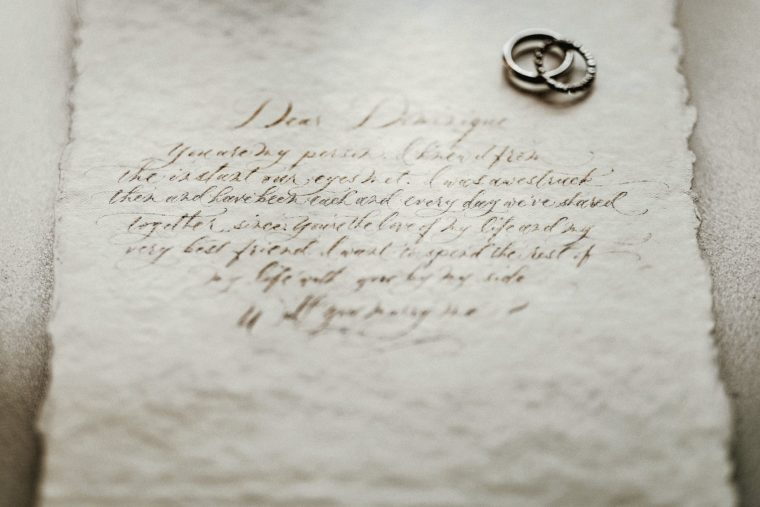 Dear Dominique
You are my person. I knew it from
the instant our eyes met. I was awestruck
then and have been each and every day we've shared
together since. You're the love of my life and my
very best friend. I want to spend the rest of
my life with you by my side
Will you marry me